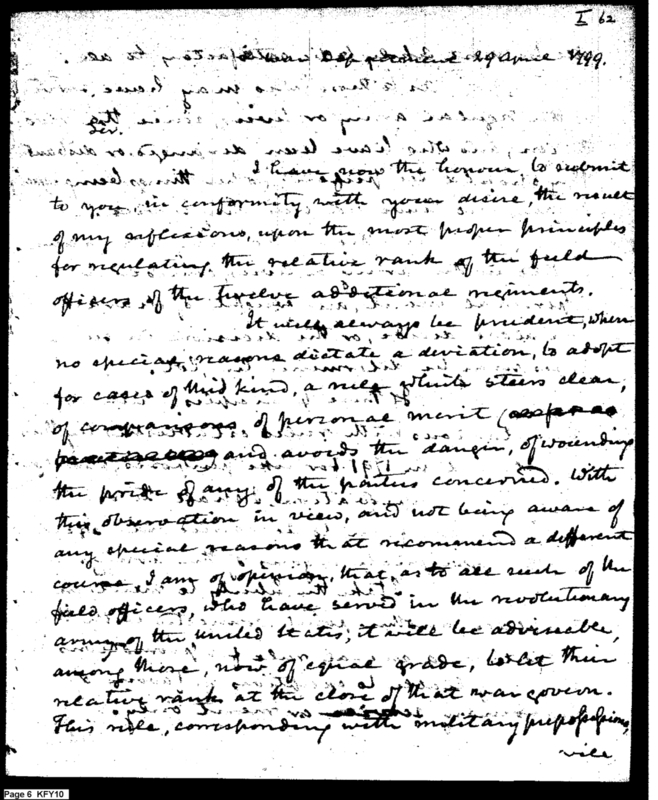 I 62
29 April 1799.
Sir.
I have now the honour, to submit
to you, in conformity with your desire, the result
of my reflexions, upon the most proper principles
for regulating the relative rank of the field
officers of the twelve additional regiments.
It will always be prudent, when
no special reasons dictate a deviation, to adopt
for cases of this kind, a rule which steers clear,
of comparisons of personal merit
and avoids the danger, of wounding
the pride of any of the parties concerned. With
this observation in view, and not being aware of
any special reasons that recommend a different
course, I am of opinion, that, as to all such of the
field officers, who have served in the revolutionary
army of the united States, it will be adviseable,
among those, now of equal grade, to let their
relative rank at the close of that war govern.
This rule, corresponding with military prepossessions,
will
Page 6 KFY10